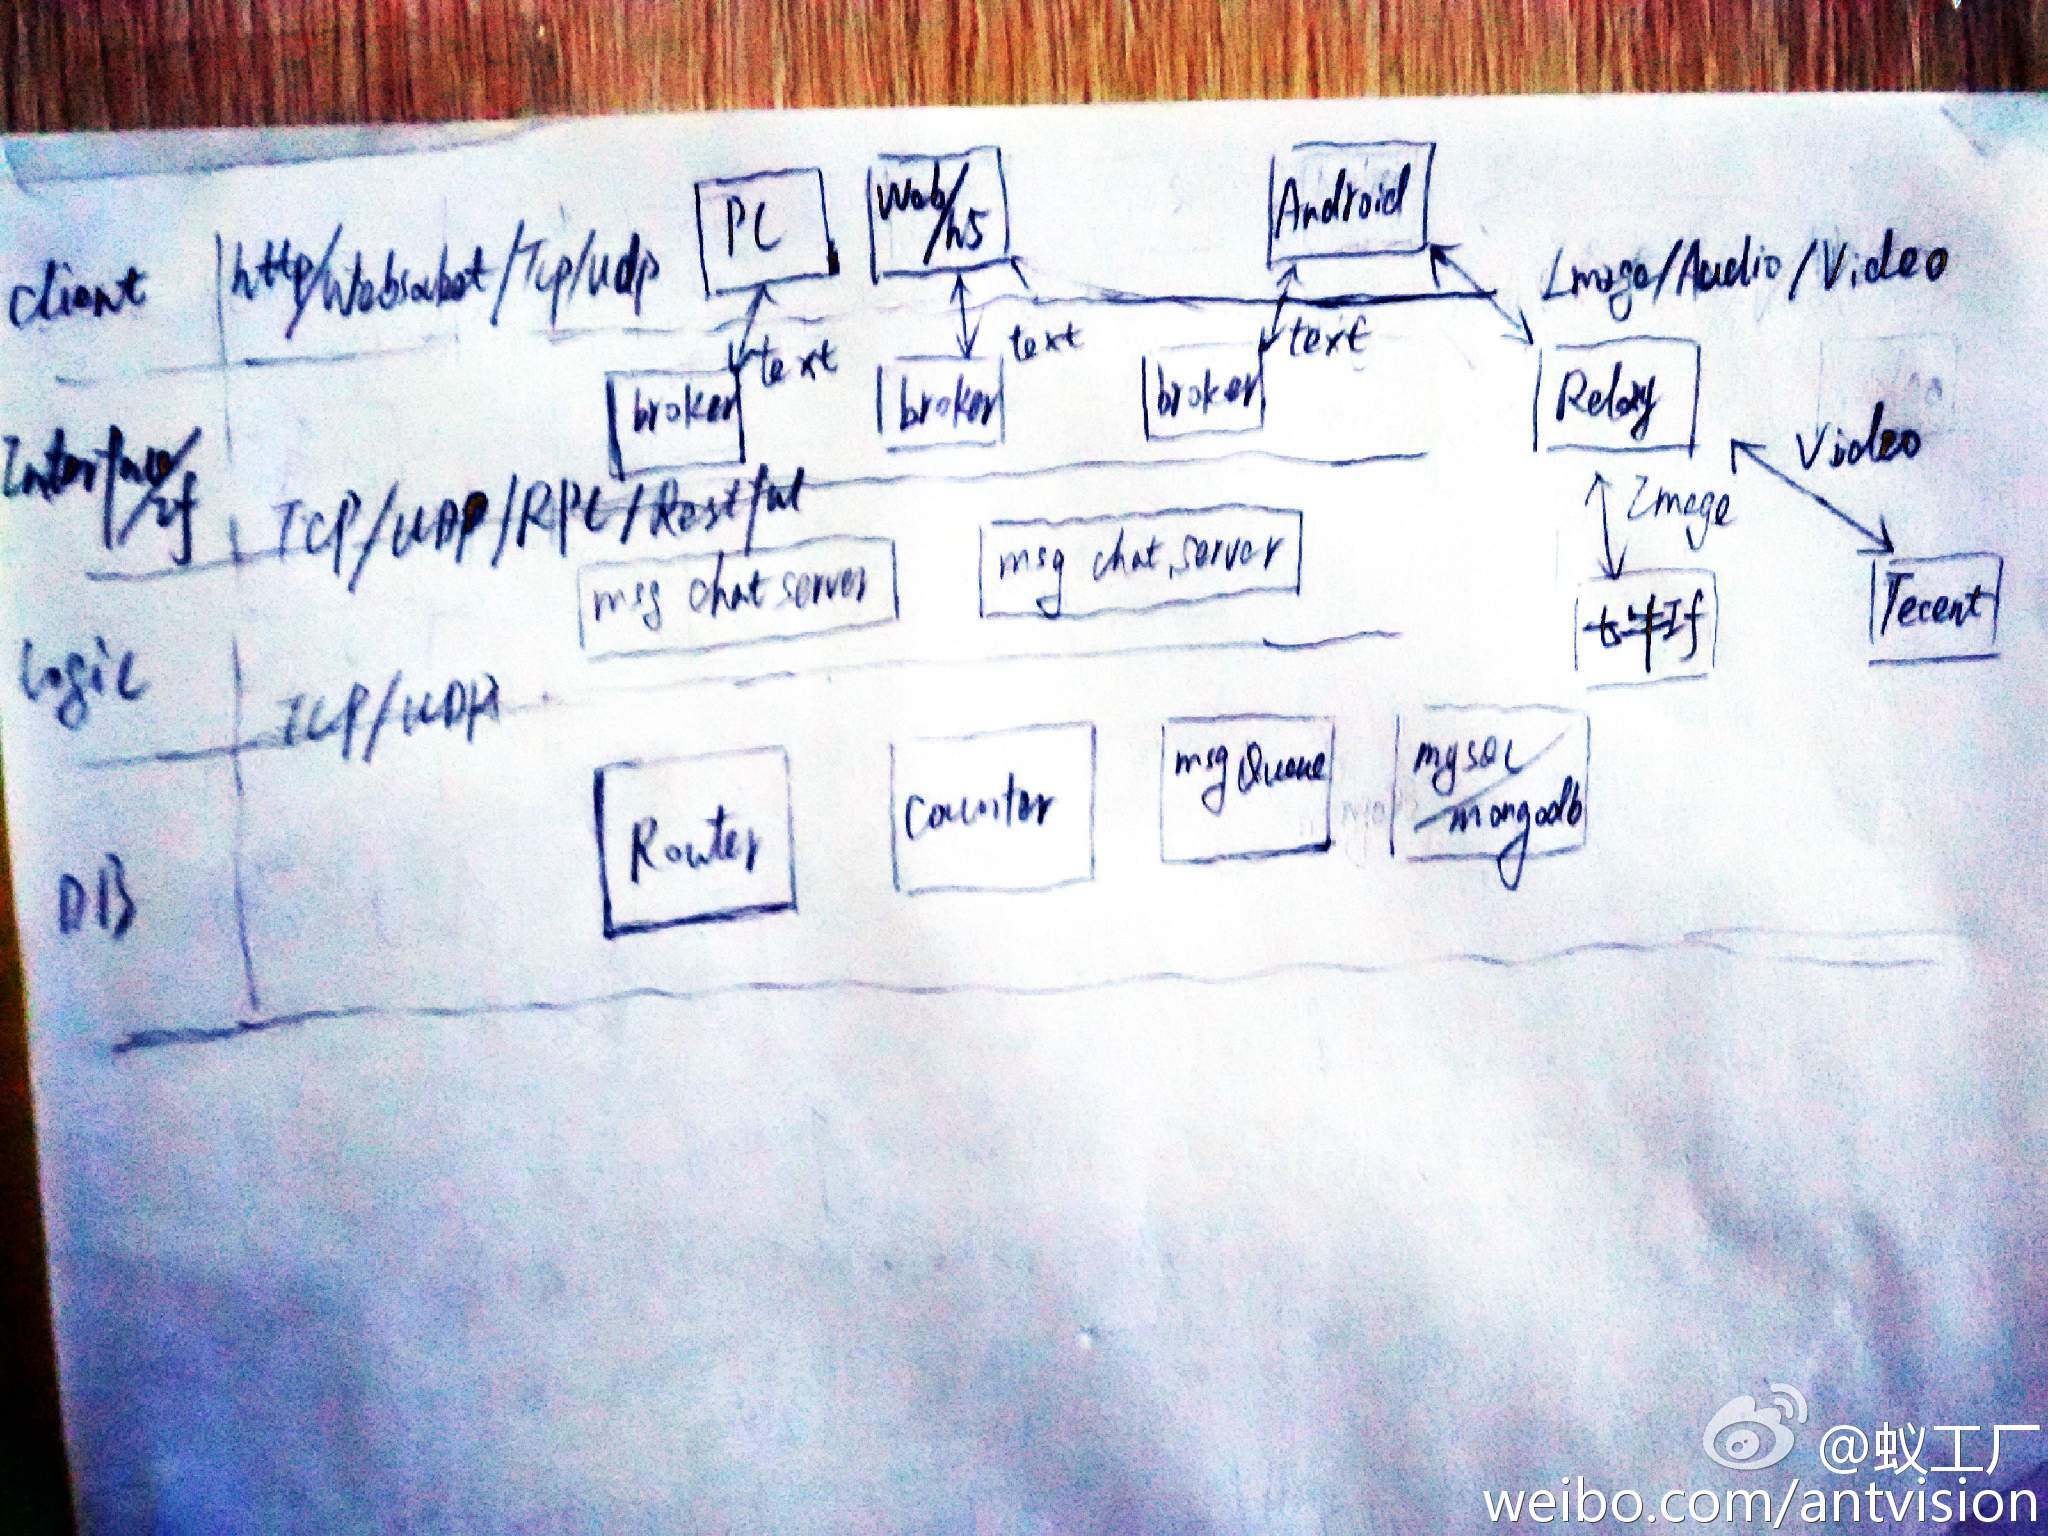 PC
Web/h5
Android
client
http/Websocket/Tcp/udp
Image/Audio/Video
text
text
text
broker
broker
broker
Relay
Video
Interface/if
TCP/UDP/RPC/Restful
Image
msg chat server
msg chat server
If
Tecent
Logic
TCP/UDP
Router
Counter
msg Queue
mysql/mongodb
DB
@蚁工厂
weibo.com/antvision